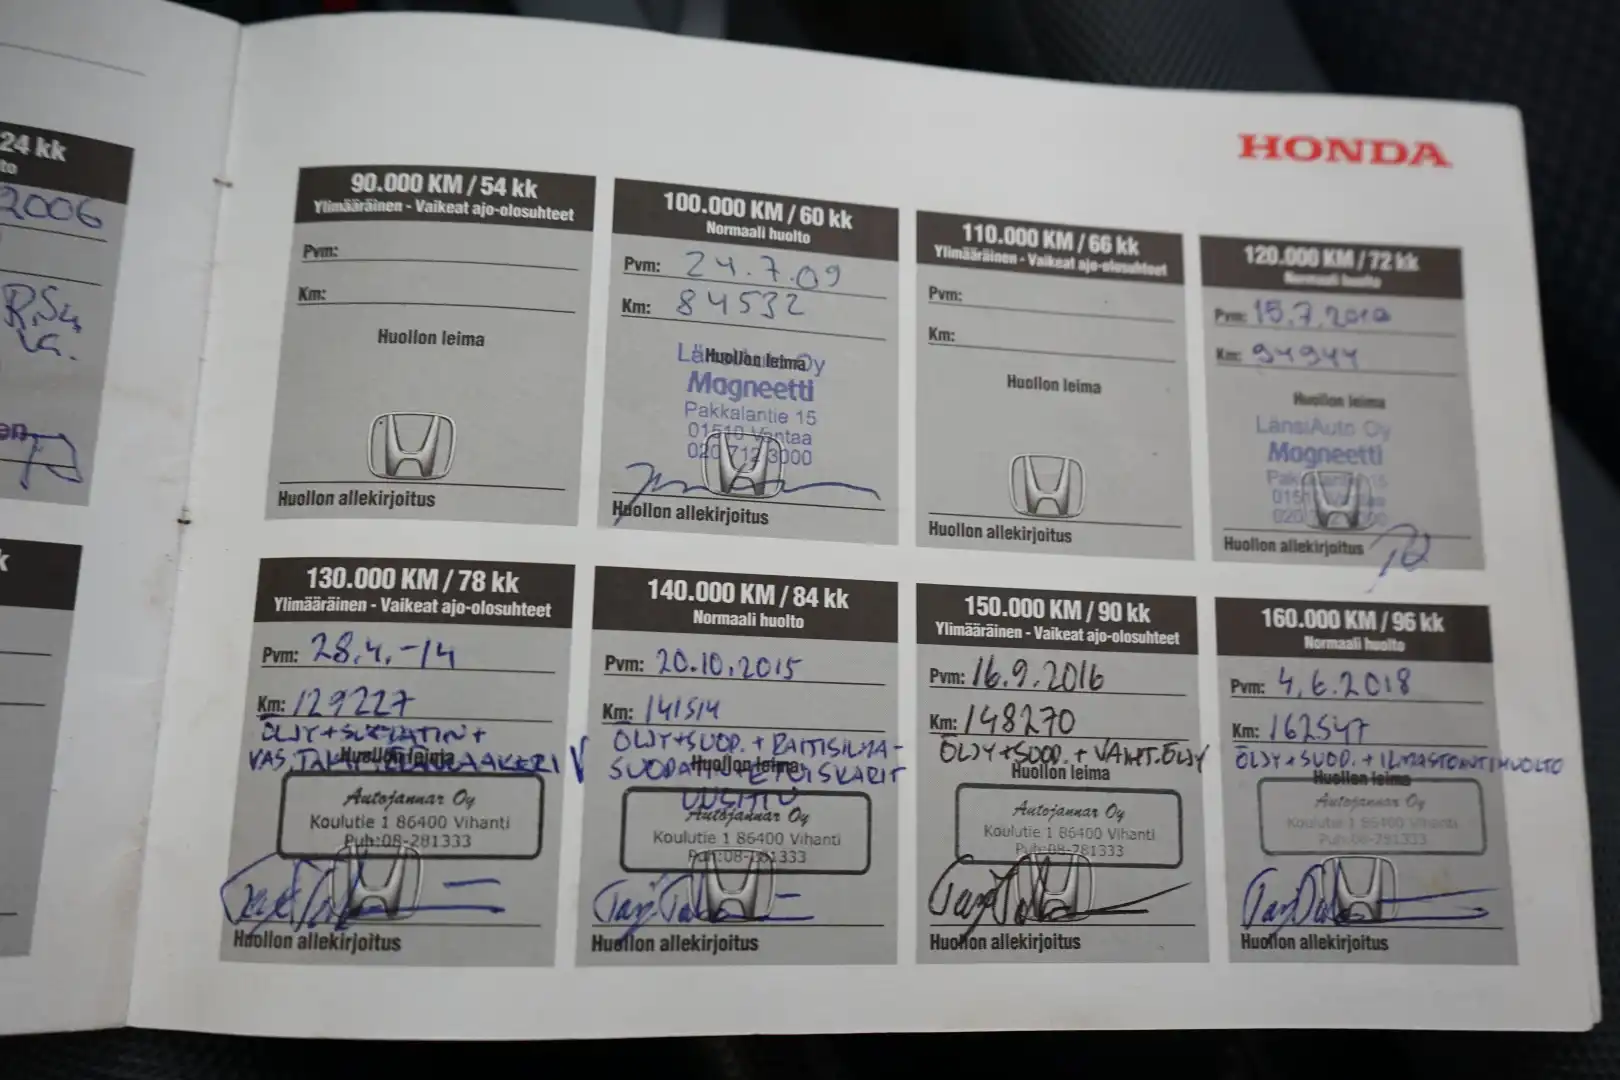 24 kk
to
2006
R.Su
HONDA
90.000 KM / 54 kk
Ylimääräinen - Vaikeat ajo-olosuhteet
Pvm:
Km:
Huollon leima
Huollon allekirjoitus
100.000 KM / 60 kk
Normaali huolto
Pvm: 24.7.09
Km: 84532
Huollon leima
LänsiAuto Oy
Magneetti
Pakkalantie 15
01510 Vantaa
020 712 3000
Huollon allekirjoitus
110.000 KM / 66 kk
Ylimääräinen - Vaikeat ajo-olosuhteet
Pvm:
Km:
Huollon leima
Huollon allekirjoitus
120.000 KM / 72 kk
Normaali huolto
Pvm: 15.7.2010
Km: 94944
Huollon leima
LänsiAuto Oy
Magneetti
Pakkalantie 15
01510 Vantaa
Huollon allekirjoitus
k
130.000 KM / 78 kk
Ylimääräinen - Vaikeat ajo-olosuhteet
Pvm: 28.4.-14
Km: 129227
ÖLJY+SUODATIN+
VAS. TAKA
Huollon leima
Autojannar Oy
Koulutie 1 86400 Vihanti
Puh:08-281333
Huollon allekirjoitus
140.000 KM / 84 kk
Normaali huolto
Pvm: 20.10.2015
Km: 141514
ÖLJY+SUOD. + RAITISILMA-
SUODATIN+ETUISKARIT
Huollon leima
UUSITTU
Autojannar Oy
Koulutie 1 86400 Vihanti
Puh:08-281333
Huollon allekirjoitus
150.000 KM / 90 kk
Ylimääräinen - Vaikeat ajo-olosuhteet
Pvm: 16.9.2016
Km: 148270
ÖLJY+SUOD. + VAIHT.ÖLJY
Huollon leima
Autojannar Oy
Koulutie 1 86400 Vihanti
Puh:08-281333
Huollon allekirjoitus
160.000 KM / 96 kk
Normaali huolto
Pvm: 4.6.2018
Km: 162547
ÖLJY+SUOD. + ILMASTOINTIHUOLTO
Huollon leima
Autojannar Oy
Koulutie 1 86400 Vihanti
Puh:08-281333
Huollon allekirjoitus